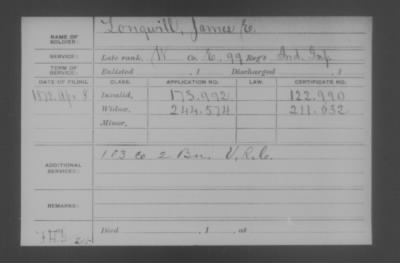 NAME OF SOLDIER: Longwill, James E.
SERVICE: Late rank, Co. E, 99 Reg't Ind. Inf.
TERM OF SERVICE: Enlisted , 1 Discharged , 1
DATE OF FILING. CLASS. APPLICATION NO. LAW. CERTIFICATE NO.
1872, Apr. 8 Invalid, 173.992 122.990
Widow, 244.574 211.632
Minor,
ADDITIONAL SERVICES: 183 Co 2 Bn. V.R.C.
REMARKS:
Died , 1 , at